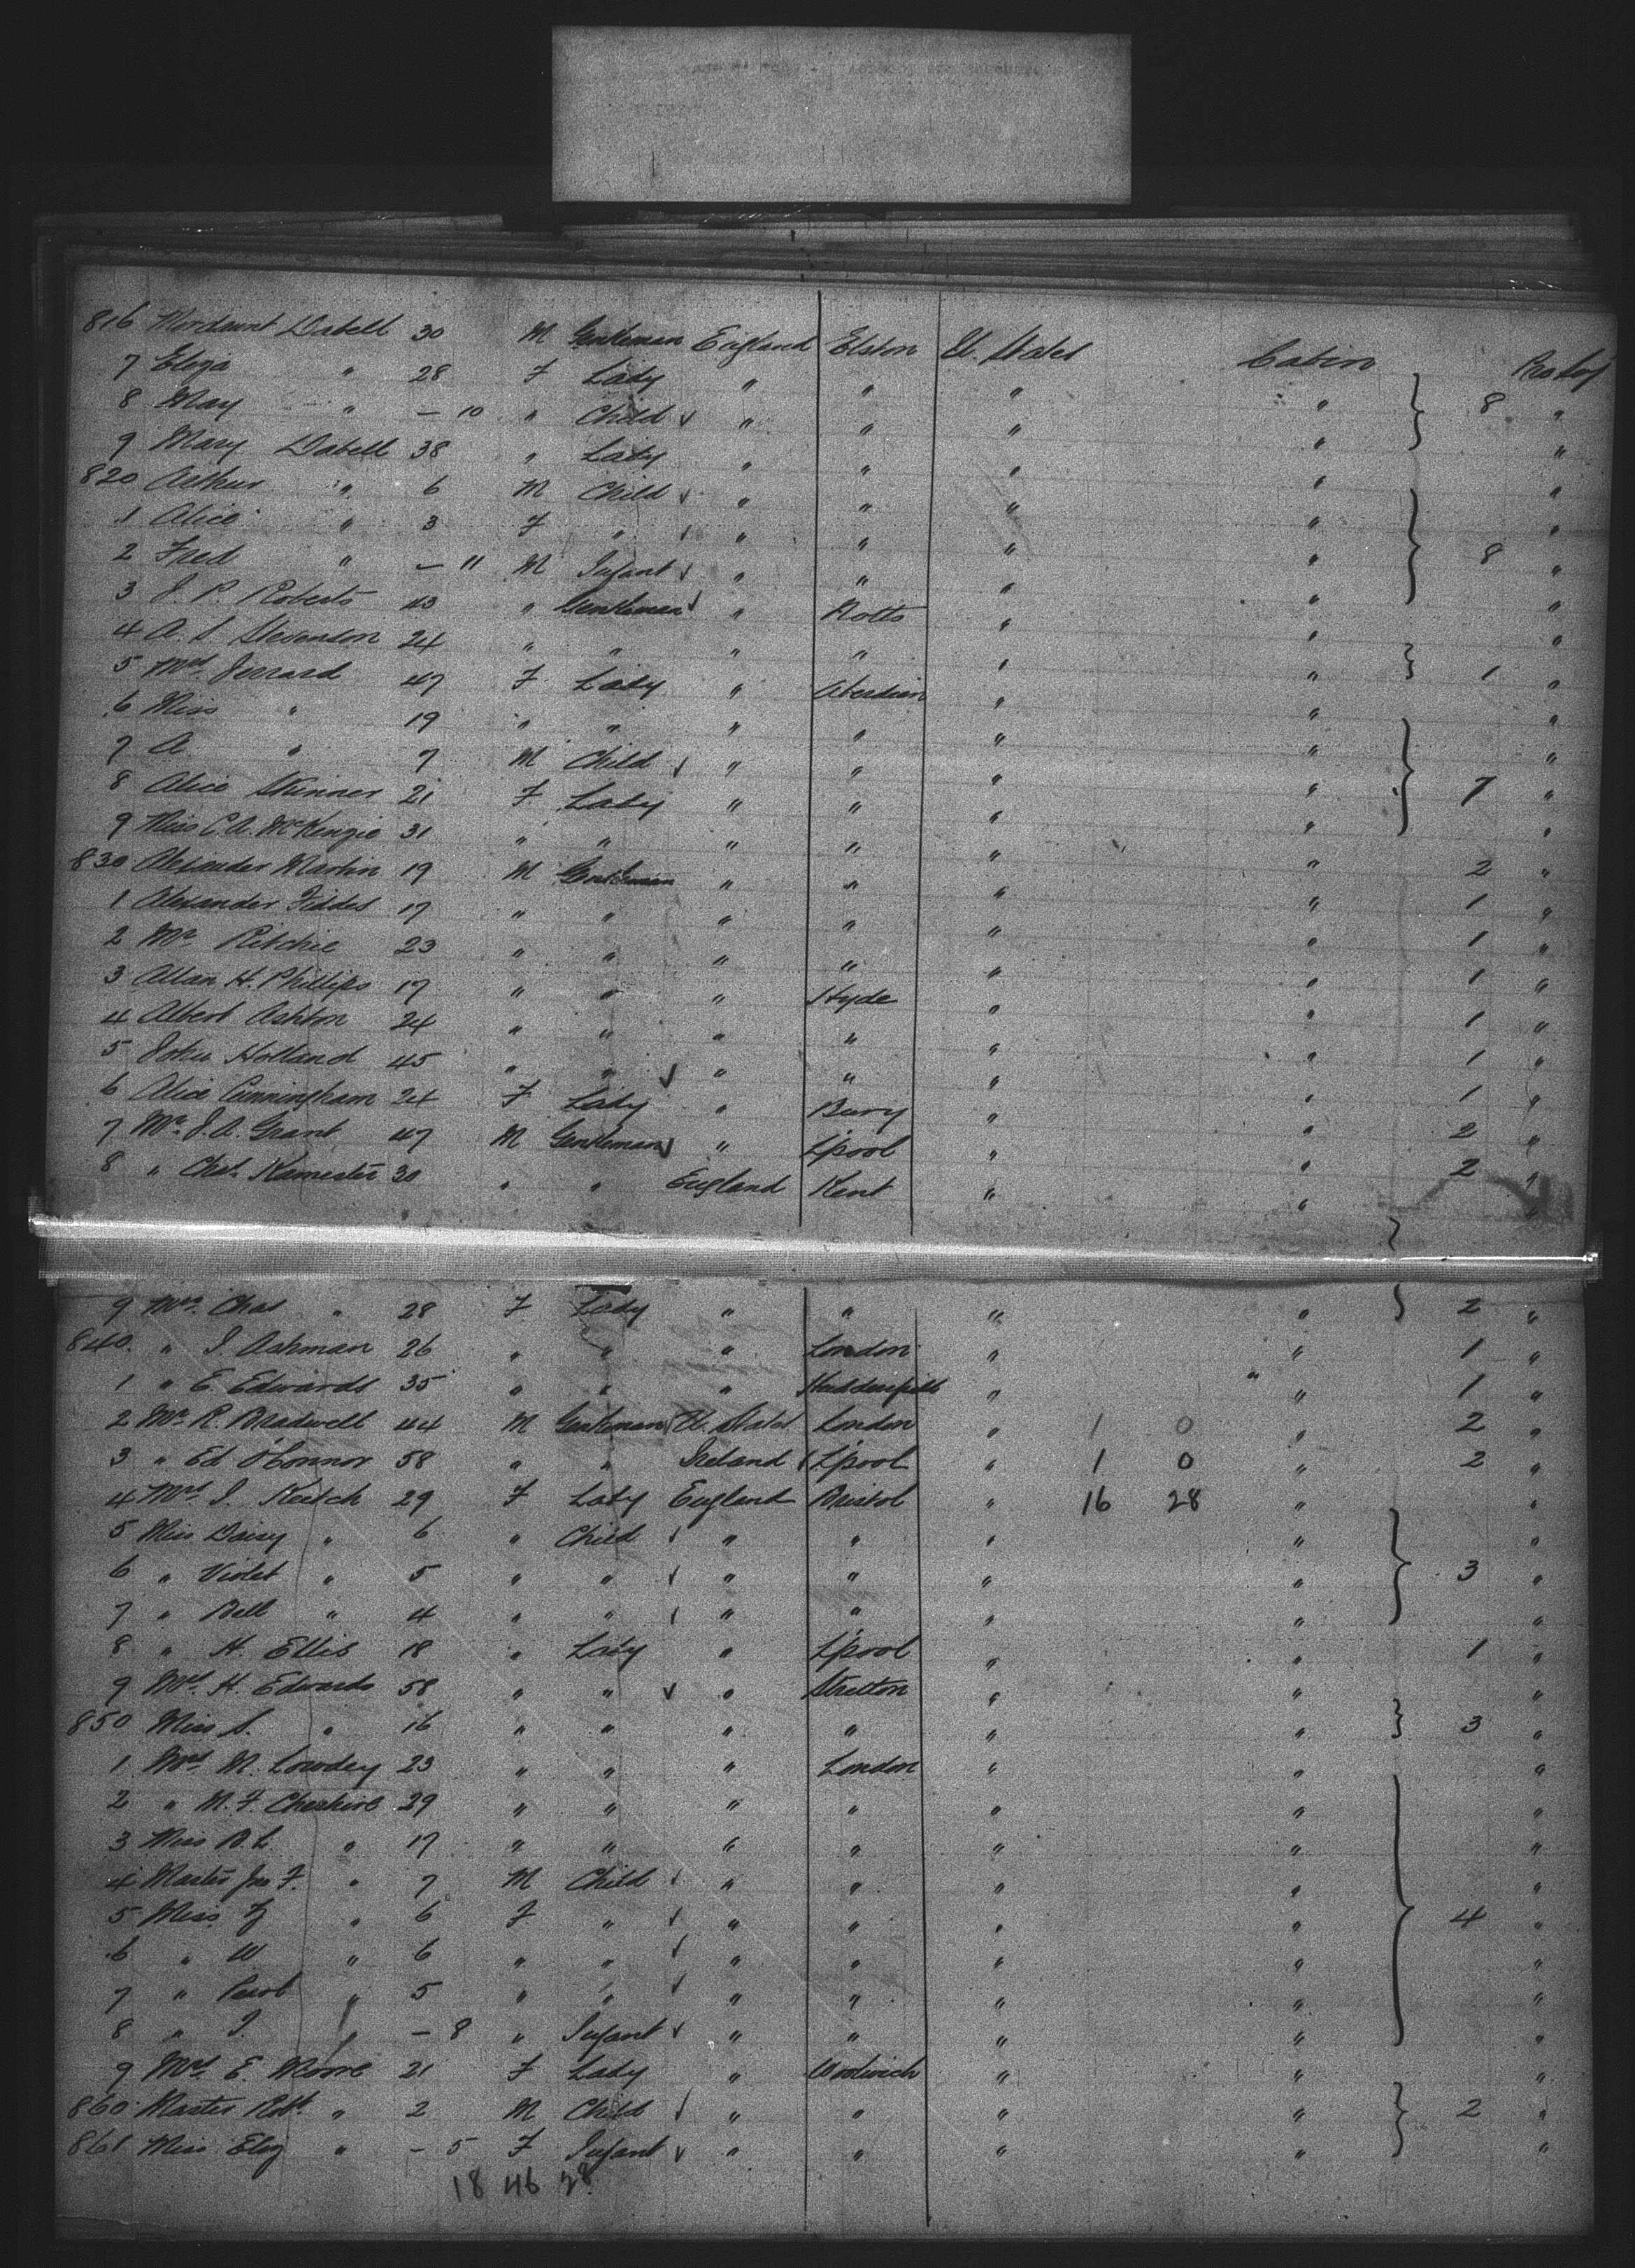 816 Mordaunt Dabell 30 M Gentleman England Elston U. States Cabin
7 Eliza " 28 F Lady " " " " 8 "
8 May " – 10 " Child " " " " "
9 Mary Dabell 38 " Lady " " " " "
820 Arthur " 6 M Child " " " " "
1 Alice " 3 F " " " " " "
2 Fred " – 11 M Infant " " " " 8 "
3 J. P. Roberts 43 " Gentleman " Notts " " "
4 A. S. Stevenson 24 " " " " " " 1 "
5 Mrs. Jerrard 47 F Lady " Aberdeen " " "
6 Miss " 19 " " " " " " "
7 A " 7 M Child " " " " 7 "
8 Alice Skinner 21 F Lady " " " " "
9 Miss C. A. McKenzie 31 " " " " " " 2 "
830 Alexander Martin 19 M Gentleman " " " " 1 "
1 Alexander Fiddes 17 " " " " " " 1 "
2 Mr. Ritchie 23 " " " " " " 1 "
3 Allan H. Phillips 17 " " " Hyde " " 1 "
4 Albert Ashton 24 " " " " " " 1 "
5 John Holland 45 " " " " " " 1 "
6 Alice Cunningham 24 F Lady " Bury " " 2 "
7 Mr. J. A. Grant 47 M Gentleman " L'pool " " 2 "
8 " Chas. 30 " " England Kent " " "
9 Mrs. Chas " 28 F Lady " " " " 2 "
840 " J. Ashman 26 " " " London " " 1 "
1 " E. Edwards 35 " " " Huddersfield " " 1 "
2 Mr. R. Bradwell 44 M Gentleman U. States London " 1 0 " 2 "
3 " Ed O'Connor 58 " " Ireland L'pool " 1 0 " 2 "
4 Mrs. J. Keitch 29 F Lady England Bristol " 16 28 " "
5 Miss Daisy " 6 " Child " " " " "
6 " Violet " 5 " " " " " " 3 "
7 " Bell " 4 " " " " " " "
8 " H. Ellis 18 " Lady " L'pool " " 1 "
9 Mrs. H. Edwards 58 " " " Stretton " " "
850 Miss S. " 16 " " " " " " 3 "
1 Mrs. M. Lowdey 23 " " " London " " "
2 " M. F. Cheshire 29 " " " " " " "
3 Miss B. L. " 17 " " " " " " "
4 Master Jno F. " 7 M Child " " " " "
5 Miss " 6 F " " " " " 4 "
6 " W " 6 " " " " " " "
7 " " 5 " " " " " " "
8 " J. " – 8 " Infant " " " " "
9 Mrs. E. Moore 21 F Lady " Woolwich " " "
860 Master Robt. " 2 M Child " " " " 2 "
861 Miss Eliz " – 5 F Infant " " " " "
18 46 28